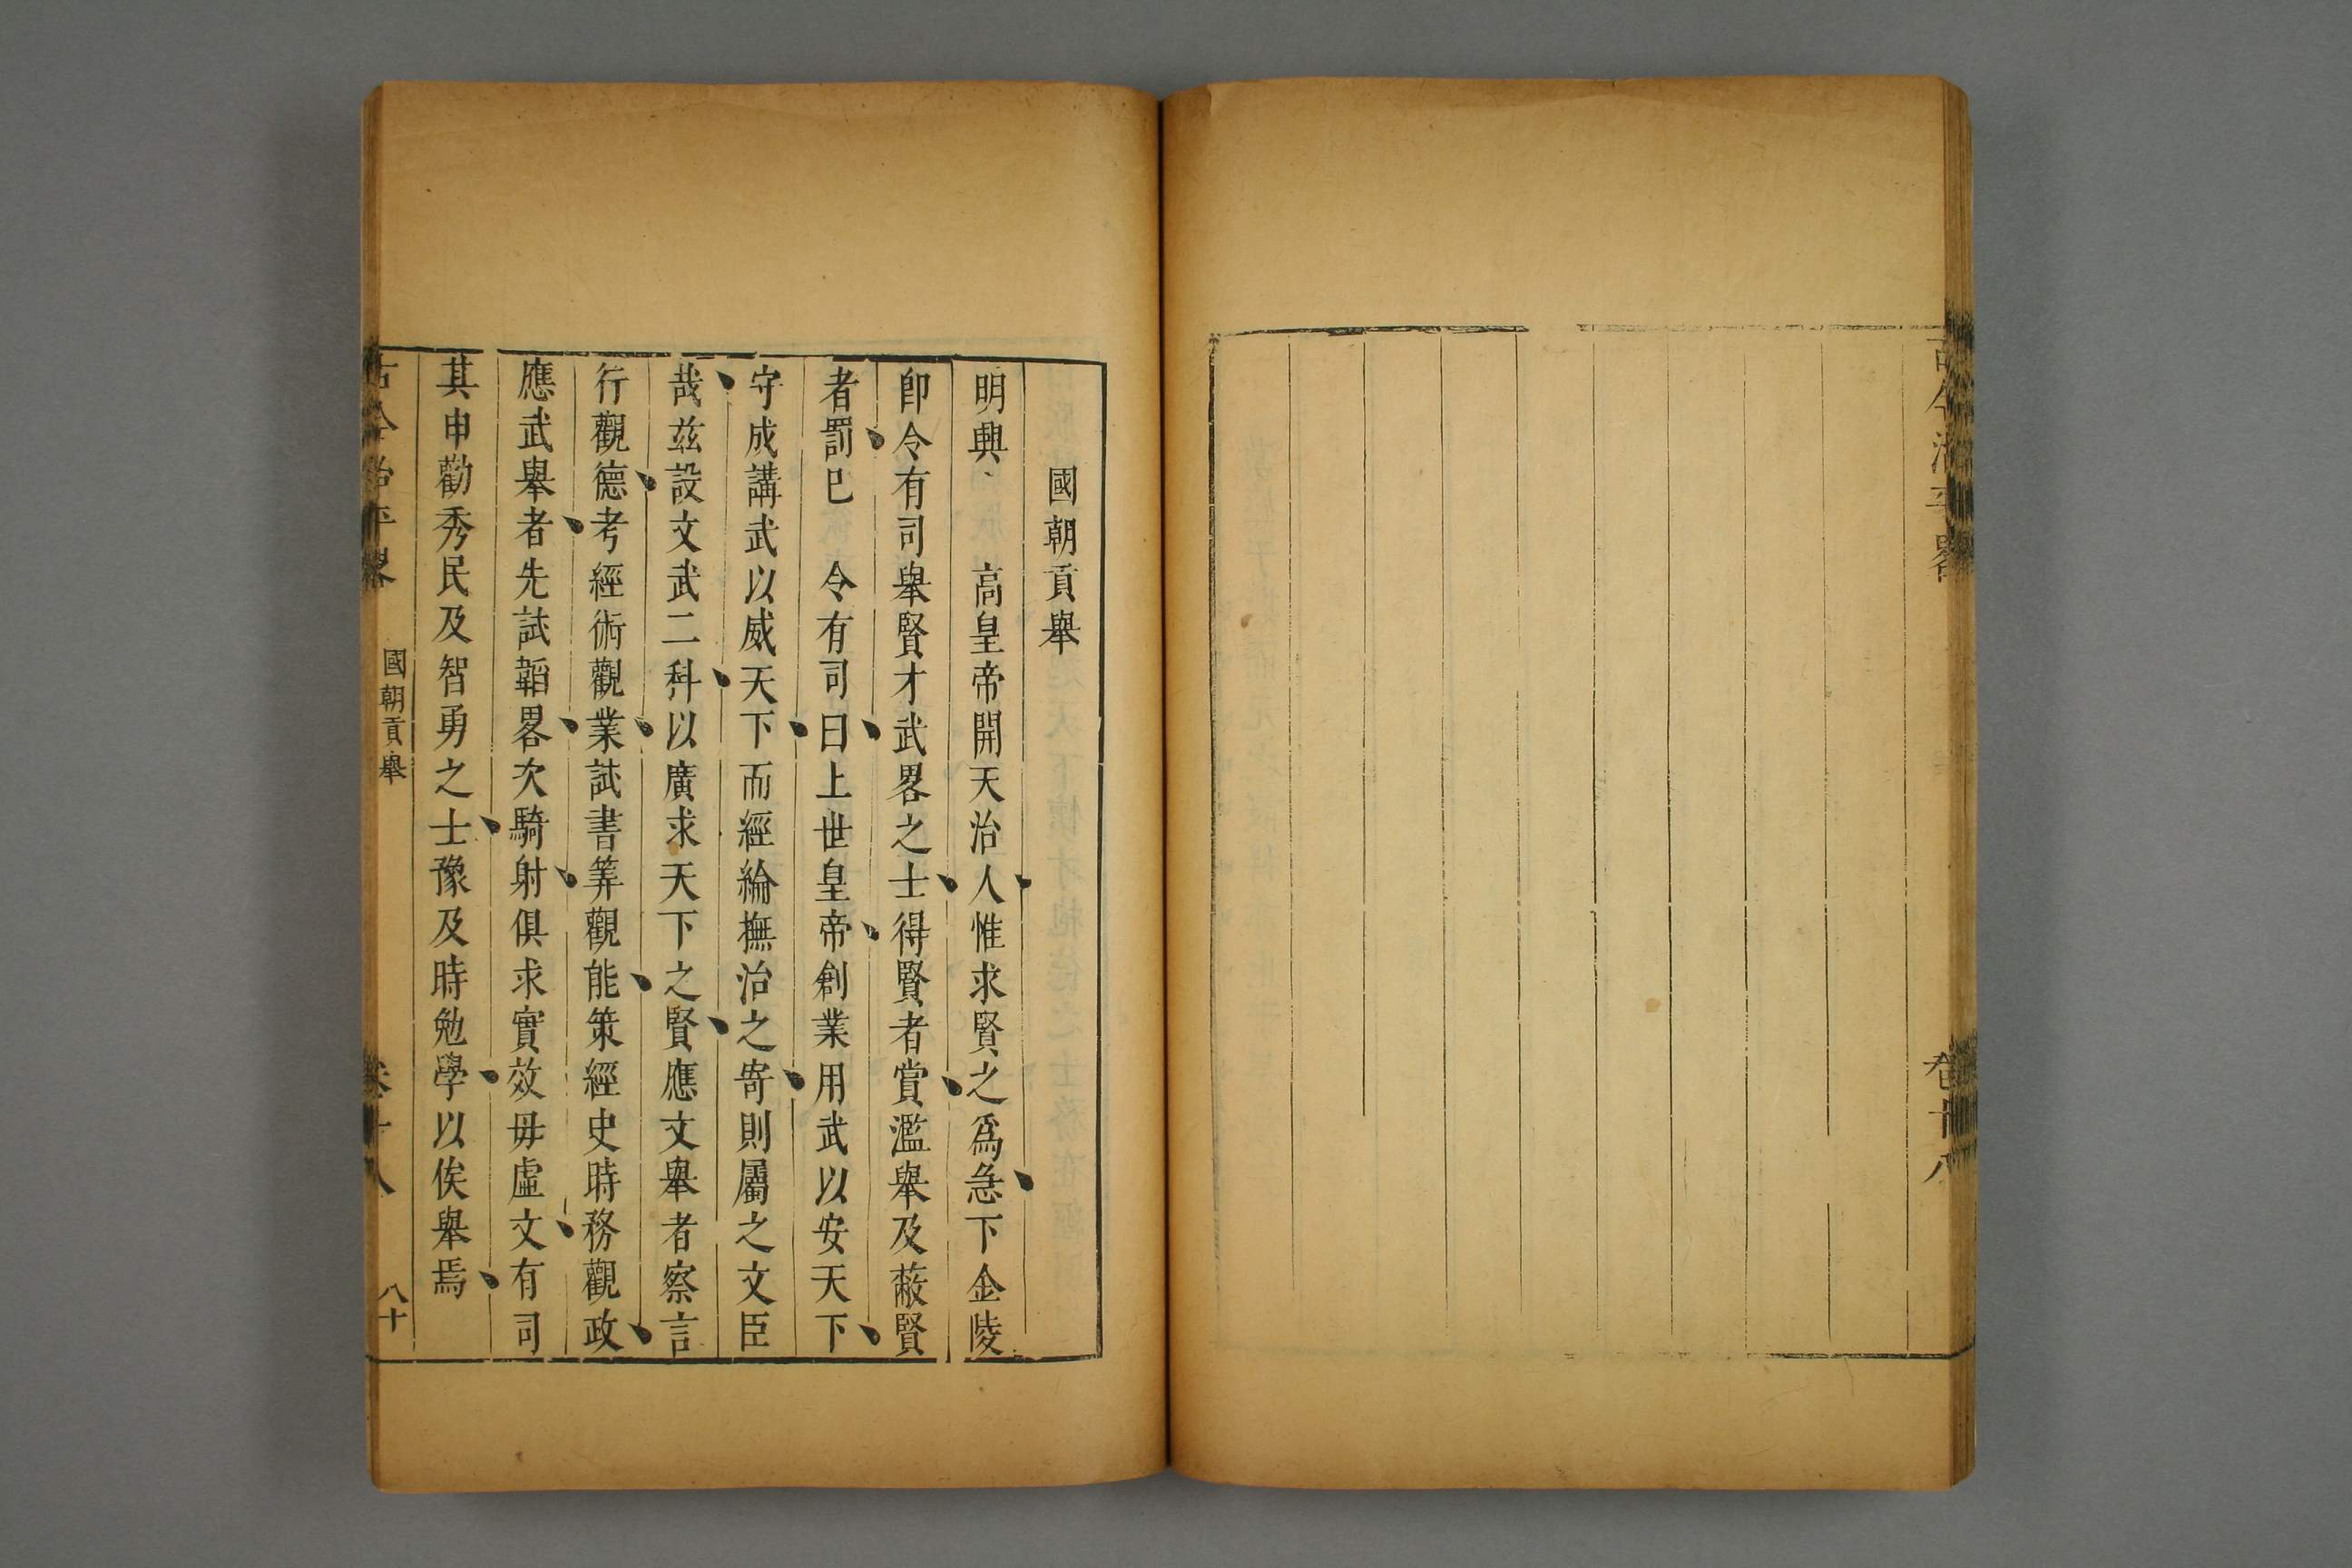 古今治平畧
卷十八
國朝貢舉
明興、高皇帝開天治人惟求賢之爲急下金陵
卽令有司舉賢才武畧之士得賢者賞濫舉及蔽賢
者罰巳 令有司曰上世皇帝創業用武以安天下
守成講武以威天下而經綸撫治之寄則屬之文臣
哉茲設文武二科以廣求天下之賢應文舉者察言
行觀德考經術觀業試書筭觀能策經史時務觀政
應武舉者先試韜畧次騎射俱求實效毋虛文有司
其申勸秀民及智勇之士豫及時勉學以俟舉焉
古今治平畧
國朝貢舉
卷十八
八十